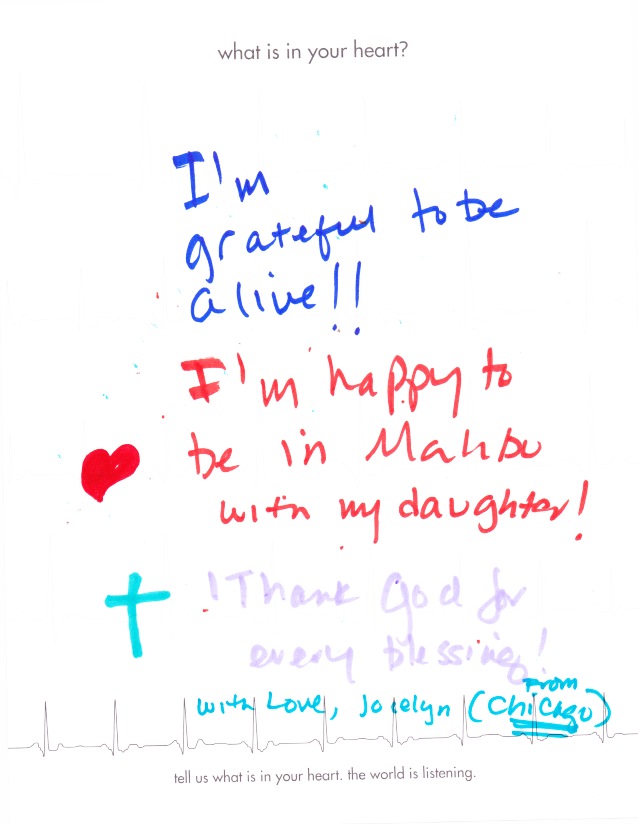 what is in your heart?
I'm
grateful to be
alive!!
I'm happy to
be in Malibu
with my daughter!
! Thank God for
every blessing!
with Love, Jocelyn (From Chicago)
tell us what is in your heart. the world is listening.